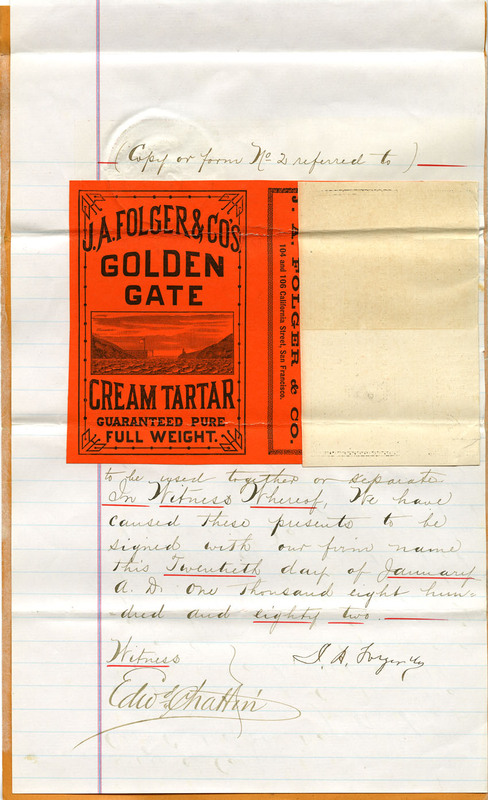 (Copy or form No 2 referred to)
J. A. FOLGER & CO'S
GOLDEN
GATE
CREAM TARTAR
GUARANTEED PURE
FULL WEIGHT.
J. A. FOLGER & CO.
104 and 106 California Street, San Francisco.
to be used together or separate
In Witness Whereof, We have
caused these presents to be
signed with our firm name
this Twentieth day of January
A. D. one thousand eight hun-
-dred and eighty two.
Witness
J. A. Folger & Co
Edwd Chattin